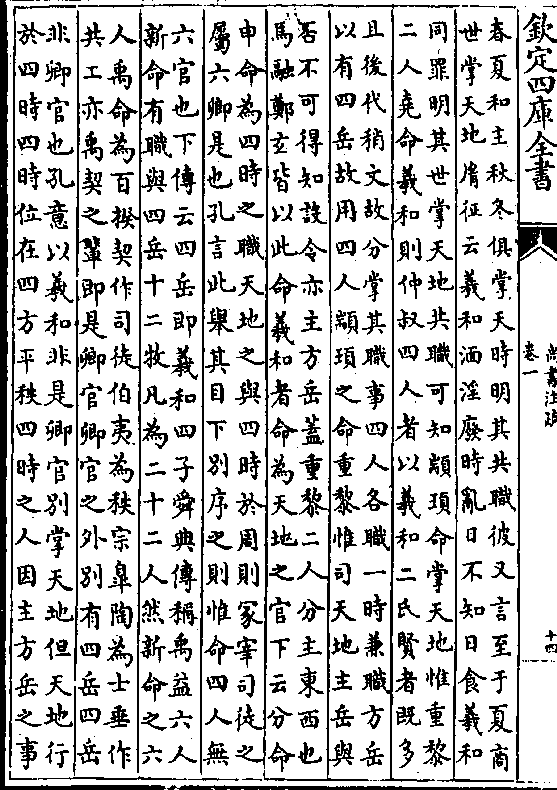 欽定四庫全書
尚書注疏
卷一
十四
春夏和主秋冬俱掌天時明其共職彼又言至于夏商
世掌天地胤征云羲和湎淫廢時亂日不知日食羲和
同罪明其世掌天地共職可知顓頊命掌天地惟重黎
二人堯命羲和則仲叔四人者以羲和二氏賢者既多
且後代稍文故分掌其職事四人各職一時兼職方岳
以有四岳故用四人顓頊之命重黎惟司天地主岳與
否不可得知設令亦主方岳蓋重黎二人分主東西也
馬融鄭玄皆以此命羲和者命為天地之官下云分命
申命為四時之職天地之與四時於周則冢宰司徒之
屬六卿是也孔言此舉其目下別序之則惟命四人無
六官也下傳云四岳即羲和四子舜典傳稱禹益六人
新命有職與四岳十二牧凡為二十二人然新命之六
人禹命為百揆契作司徒伯夷為秩宗皐陶為士垂作
共工亦禹契之輩即是卿官卿官之外別有四岳四岳
非卿官也孔意以羲和非是卿官別掌天地但天地行
於四時四時位在四方平秩四時之人因主方岳之事